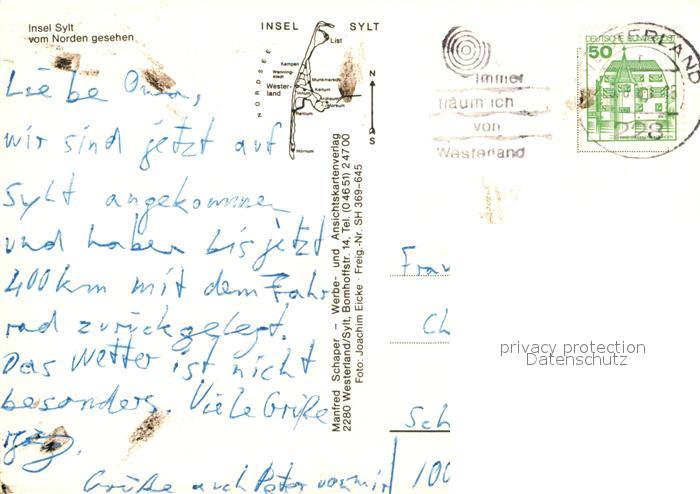 Insel Sylt
vom Norden gesehen
INSEL SYLT
NORDSEE
List
Kampen
Wenning-
stedt
Munkmarsch
Wester-
land
Keitum
Archsum
Morsum
Rantum
Hörnum
N
S
Immer
träum ich
von
Westerland
DEUTSCHE BUNDESPOST
50
WESTERLAND
228
Liebe Oma,
wir sind jetzt auf
Sylt angekommen
und haben bis jetzt
400 km mit dem Fahr-
rad zurückgelegt.
Das Wetter ist nicht
besonders. Viele Grüße
Grüße auch Peter von mir
Manfred Schaper – Werbe- und Ansichtskartenverlag
2280 Westerland/Sylt, Bomhoffstr. 14, Tel. (0 46 51) 2 47 00
Foto: Joachim Eicke · Freig.-Nr. SH 369-645
Frau
Ch
Sch
100
privacy protection
Datenschutz